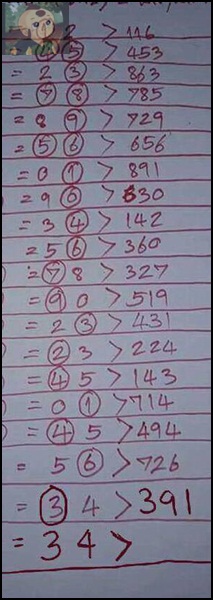 2 > 116
4 5 > 453
= 2 3 > 863
= 7 8 > 785
= 8 9 > 729
= 5 6 > 656
= 0 1 > 891
= 9 6 > 630
= 3 4 > 142
= 5 6 > 360
= 7 8 > 327
= 9 0 > 519
= 2 3 > 431
= 2 3 > 224
= 4 5 > 143
= 0 1 > 714
= 4 5 > 494
= 5 6 > 726
= 3 4 > 391
= 3 4 >